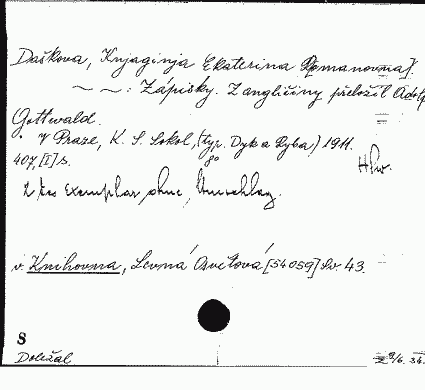 Daškova, Knjaginja Ekaterina Romanovna].
~ ~ : Zápisky. Z angličiny přeložil Adolf
Gottwald.
V Praze, K. S. Sokol, (typ. Dyk a Ryba) 1911.
407, [I] s. 8°
HPr.
2tes Exemplar ohne Umschlag.
v. Knihovna, Levná Osvětová [54059] Sv. 43.
S
Doležal
/6. 34.